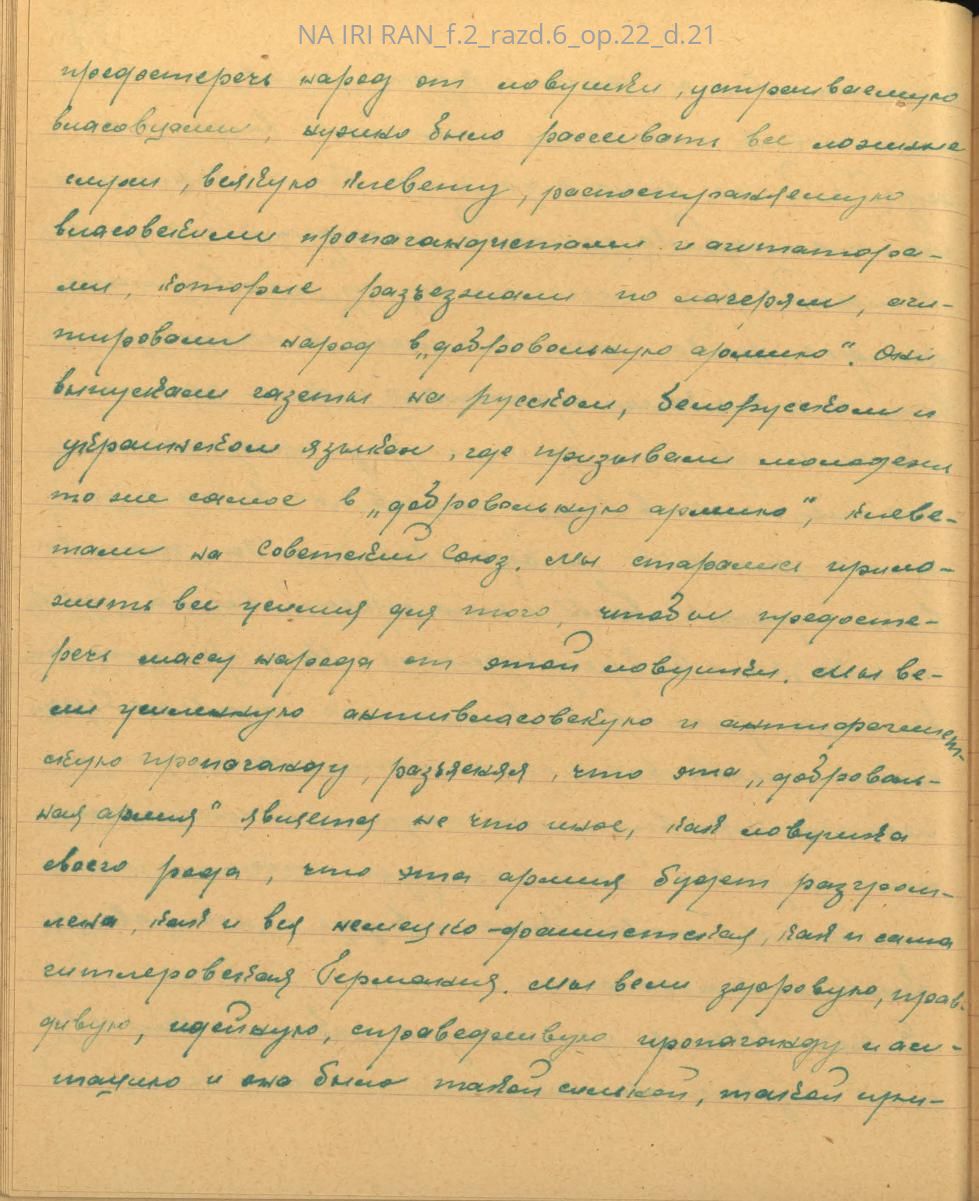 NA IRI RAN_f.2_razd.6_op.22_d.21
предостеречь народ от ловушки, устраиваемую
власовцами, нужно было рассеивать все ложные
слухи, всякую клевету, распостраняемую
власовскими пропагандистами и агитатора-
ми, которые разъезжали по лагерям, аги-
тировали народ в „добровольную армию“. Они
выпускали газеты на русском, белорусском и
украинском языках, где призывали молодежь
то же самое в „добровольную армию“, клеве-
тали на Советский Союз. Мы старались прило-
жить все усилия для того, чтобы предосте-
речь массу народа от этой ловушки. Мы ве-
ли усиленную антивласовскую и антифашист-
скую пропаганду, разъясняя, что эта „доброволь-
ная армия“ является не что иное, как ловушка
своего рода, что эта армия будет разгром-
лена, как и вся немецко-фашистская, как и сама
гитлеровская Германия. Мы вели здоровую, прав-
дивую, идейную, справедливую пропаганду и аги-
тацию и она была такой сильной, такой при-